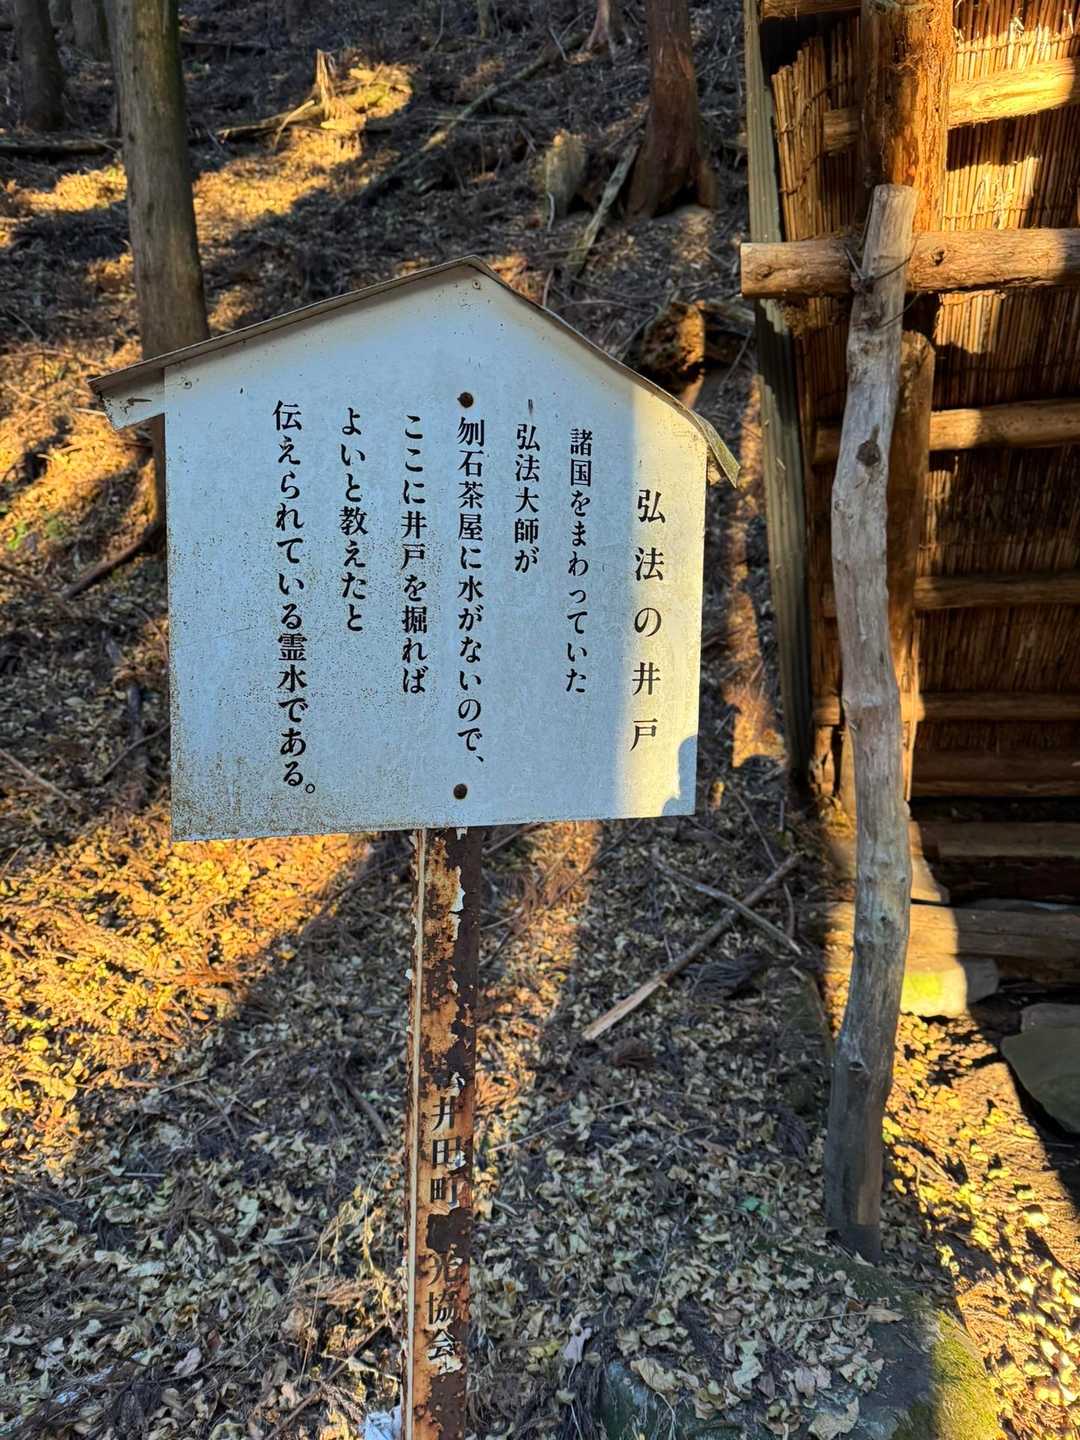 弘法の井戸
諸国をまわっていた
弘法大師が
刎石茶屋に水がないので、
ここに井戸を掘れば
よいと教えたと
伝えられている霊水である。
井田町 光協会